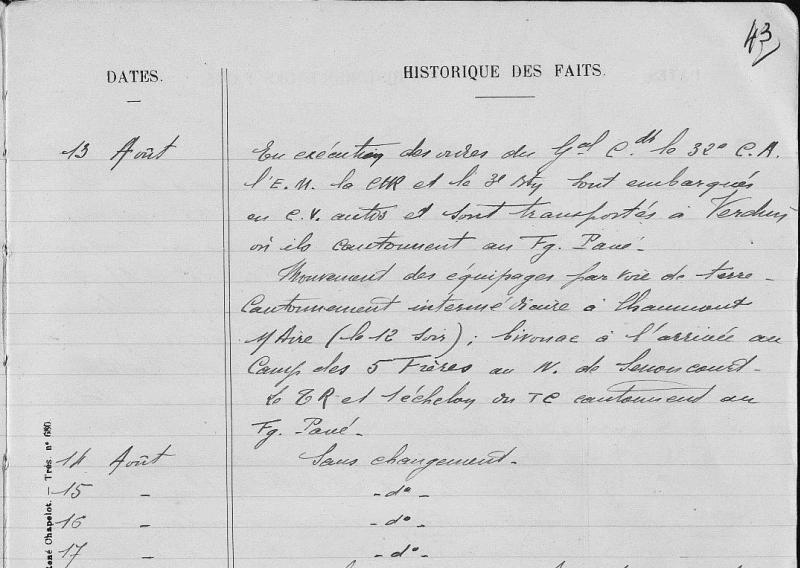 43
DATES.
HISTORIQUE DES FAITS.
13 Août
En exécution des ordres du Gal Cdt le 32e C.A.
l'E.M. la CHR et le 3e Btn sont embarqués
en C.V. autos et sont transportés à Verdun
où ils cantonnent au Fg. Pavé.
Mouvement des équipages par voie de terre -
Cantonnement intermédiaire à Chaumont
s/Aire (le 12 soir) ; bivouac à l'arrivée au
Camp des 5 Frères au N. de Senoncourt -
Le TR et l'échelon du TC cantonnent au
Fg. Pavé -
14 Août
Sans changement -
15 -
- do -
16 -
- do -
17 -
- do -
René Chapelot. — Trés. n° 680.